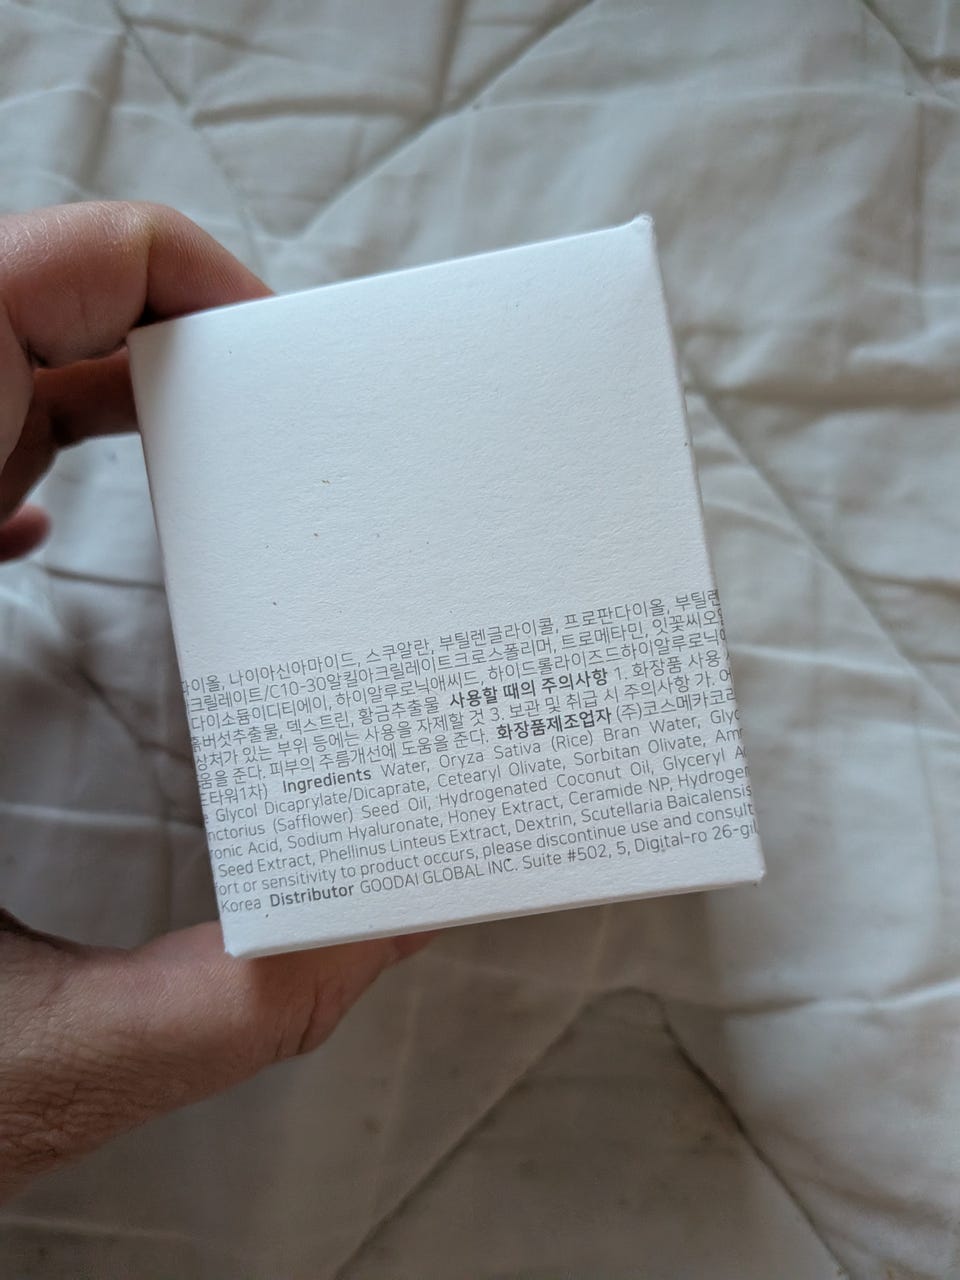 다이올, 나이아신아마이드, 스쿠알란, 부틸렌글라이콜, 프로판다이올, 부틸렌
크릴레이트/C10-30알킬아크릴레이트크로스폴리머, 트로메타민, 잇꽃씨오일
다이소듐이디티에이, 하이알루로닉애씨드, 하이드롤라이즈드하이알루로닉애
버섯추출물, 덱스트린, 황금추출물 사용할 때의 주의사항 1. 화장품 사용
상처가 있는 부위 등에는 사용을 자제할 것 3. 보관 및 취급 시 주의사항 가. 어
움을 준다. 피부의 주름개선에 도움을 준다. 화장품제조업자 (주)코스메카코리
타워1차) Ingredients Water, Oryza Sativa (Rice) Bran Water, Glyc
Glycol Dicaprylate/Dicaprate, Cetearyl Olivate, Sorbitan Olivate, Am
nctorius (Safflower) Seed Oil, Hydrogenated Coconut Oil, Glyceryl A
ronic Acid, Sodium Hyaluronate, Honey Extract, Ceramide NP, Hydrogen
Seed Extract, Phellinus Linteus Extract, Dextrin, Scutellaria Baicalensis
fort or sensitivity to product occurs, please discontinue use and consult
Korea Distributor GOODAI GLOBAL INC. Suite #502, 5, Digital-ro 26-gil